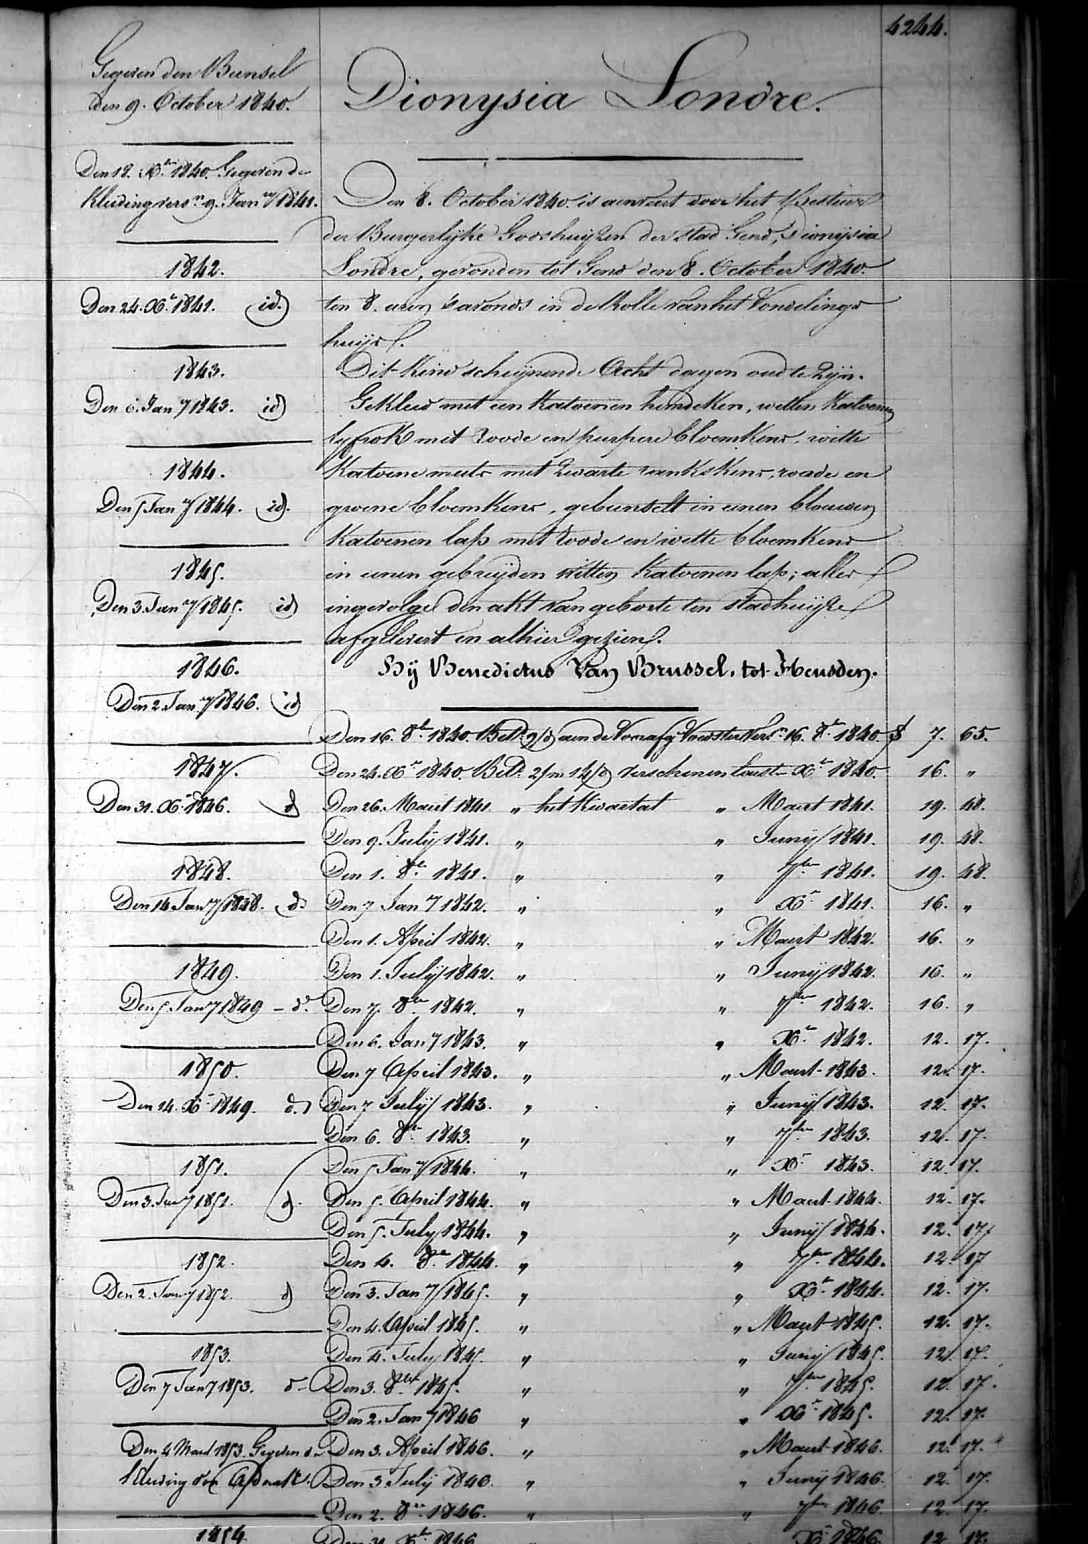 4244.
Gegeven den Bunsel
den 9. October 1840.
Dionysia Londre.
Den 12. Xbr 1840. Gegeven de
Kleding vers. 9. Jany 1841.
1842.
Den 24. Xbr 1841. id
1843.
Den 6. Jany 1843. id
1844.
Den 5 Jany 1844. id.
1845.
Den 3. Jany 1845. id
1846.
Den 2. Jany 1846. id
1847.
Den 31. Xbr 1846. d
1848.
Den 14 Jany 1848. d.
1849.
Den 5. Jany 1849 - do
1850.
Den 24. Xbr 1849. d.
1851.
Den 3. Jany 1851. d.
1852.
Den 2. Jany 1852. d
1853.
Den 7 Jany 1853. d
Den 4 Maart 1853. Gegeven de
Kleeding der
1854.
Den 8. October 1840 is aenveert door het Bestuur
der Burgerlijke Godshuijzen der stad Gend, Dionysia
Londre, gevonden tot Gend den 8. October 1840.
ten 8. uren s'avonds in de Rolle van het Vondelings
huijs.
Dit kind scheijnende Acht dagen oud te zijn.
Gekleed met een Katoenen hemdeken, witten Katoenen
lyfrok met roode en purpere bloemkens, witte
Katoene muts met zwarte rankskens, roode en
groene bloemkens, gebunselt in eenen blauwen
Katoenen lap met roode en witte bloemkens
in eenen gebreijden witten Katoenen lap; alles
ingevolge den akt van geborte ten stadhuijze
afgelevert en alhier gezien.
Bij Benedictus Van Brussel. tot Heusden.
Den 16. 8br 1840. Bet. 9/d aen de Voorafg Voedster Vers. 16. 8br 1840 f 7. 65.
Den 24. Xbr 1840. Bet. 2/m 14/d verschenen laatst Xbr 1840. 16. "
Den 26. Maart 1841. " het Kwartal " Maart 1841. 19. 48.
Den 9. July 1841. " " Junij 1841. 19. 48.
Den 1. 8br 1841. " " 7br 1841. 19. 48.
Den 7 Jany 1842. " " Xbr 1841. 16. "
Den 1. April 1842. " " Maart 1842. 16. "
Den 1. July 1842. " " Junij 1842. 16. "
Den 7. 8br 1842. " " 7br 1842. 16. "
Den 6. Jany 1843. " " Xbr 1842. 12. 17.
Den 7 April 1843. " " Maart 1843. 12. 17.
Den 7 July 1843. " " Junij 1843. 12. 17.
Den 6. 8br 1843. " " 7br 1843. 12. 17.
Den 5 Jany 1844. " " Xbr 1843. 12. 17.
Den 5. April 1844. " " Maart 1844. 12. 17.
Den 5. July 1844. " " Junij 1844. 12. 17.
Den 4. 8br 1844. " " 7br 1844. 12. 17
Den 3. Jany 1845. " " Xbr 1844. 12. 17.
Den 4. April 1845. " " Maart 1845. 12. 17.
Den 4. July 1845. " " Junij 1845. 12. 17.
Den 3. 8ber 1845. " " 7br 1845. 12. 17.
Den 2. Jany 1846 " " Xbr 1845. 12. 17.
Den 3. April 1846. " " Maart 1846. 12. 17.
Den 3 July 1846. " " Junij 1846. 12. 17.
Den 2. 8br 1846. " " 7br 1846. 12. 17.
Den 31. Xbr 1846 " Xbr 1846. 12. 17.